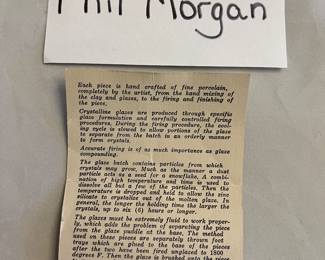 Phil Morgan
Each piece is hand crafted of fine porcelain,
completely by the artist, from the hand mixing of
the clay and glazes, to the firing and finishing of
the piece.
Crystalline glazes are produced through specific
glaze formulation and carefully controlled firing
procedures. During the firing procedure, the cool-
ing cycle is slowed to allow portions of the glaze
to separate from the batch in an orderly manner
to form crystals.
Accurate firing is of as much importance as glaze
compounding.
The glaze batch contains particles from which
crystals may grow. Much as the manner a dust
particle acts as a seed for a snowflake. A combi-
nation of high temperature and time is used to
dissolve all but a few of the particles. Then the
temperature is dropped and held to allow the zinc
silicate to crystalize out of the molten glaze. In
general, the longer the holding time the larger the
crystals, up to six (6) hours or longer.
The glazes must be extremely fluid to work proper-
ly, which adds the problem of separating the piece
from the glaze puddle at the base. The method
used on these pieces are separately thrown foot
trays which are glued to the base of the pieces
after the two have been fired unglazed to 1800
degrees F. Then the glaze is brushed onto the piece